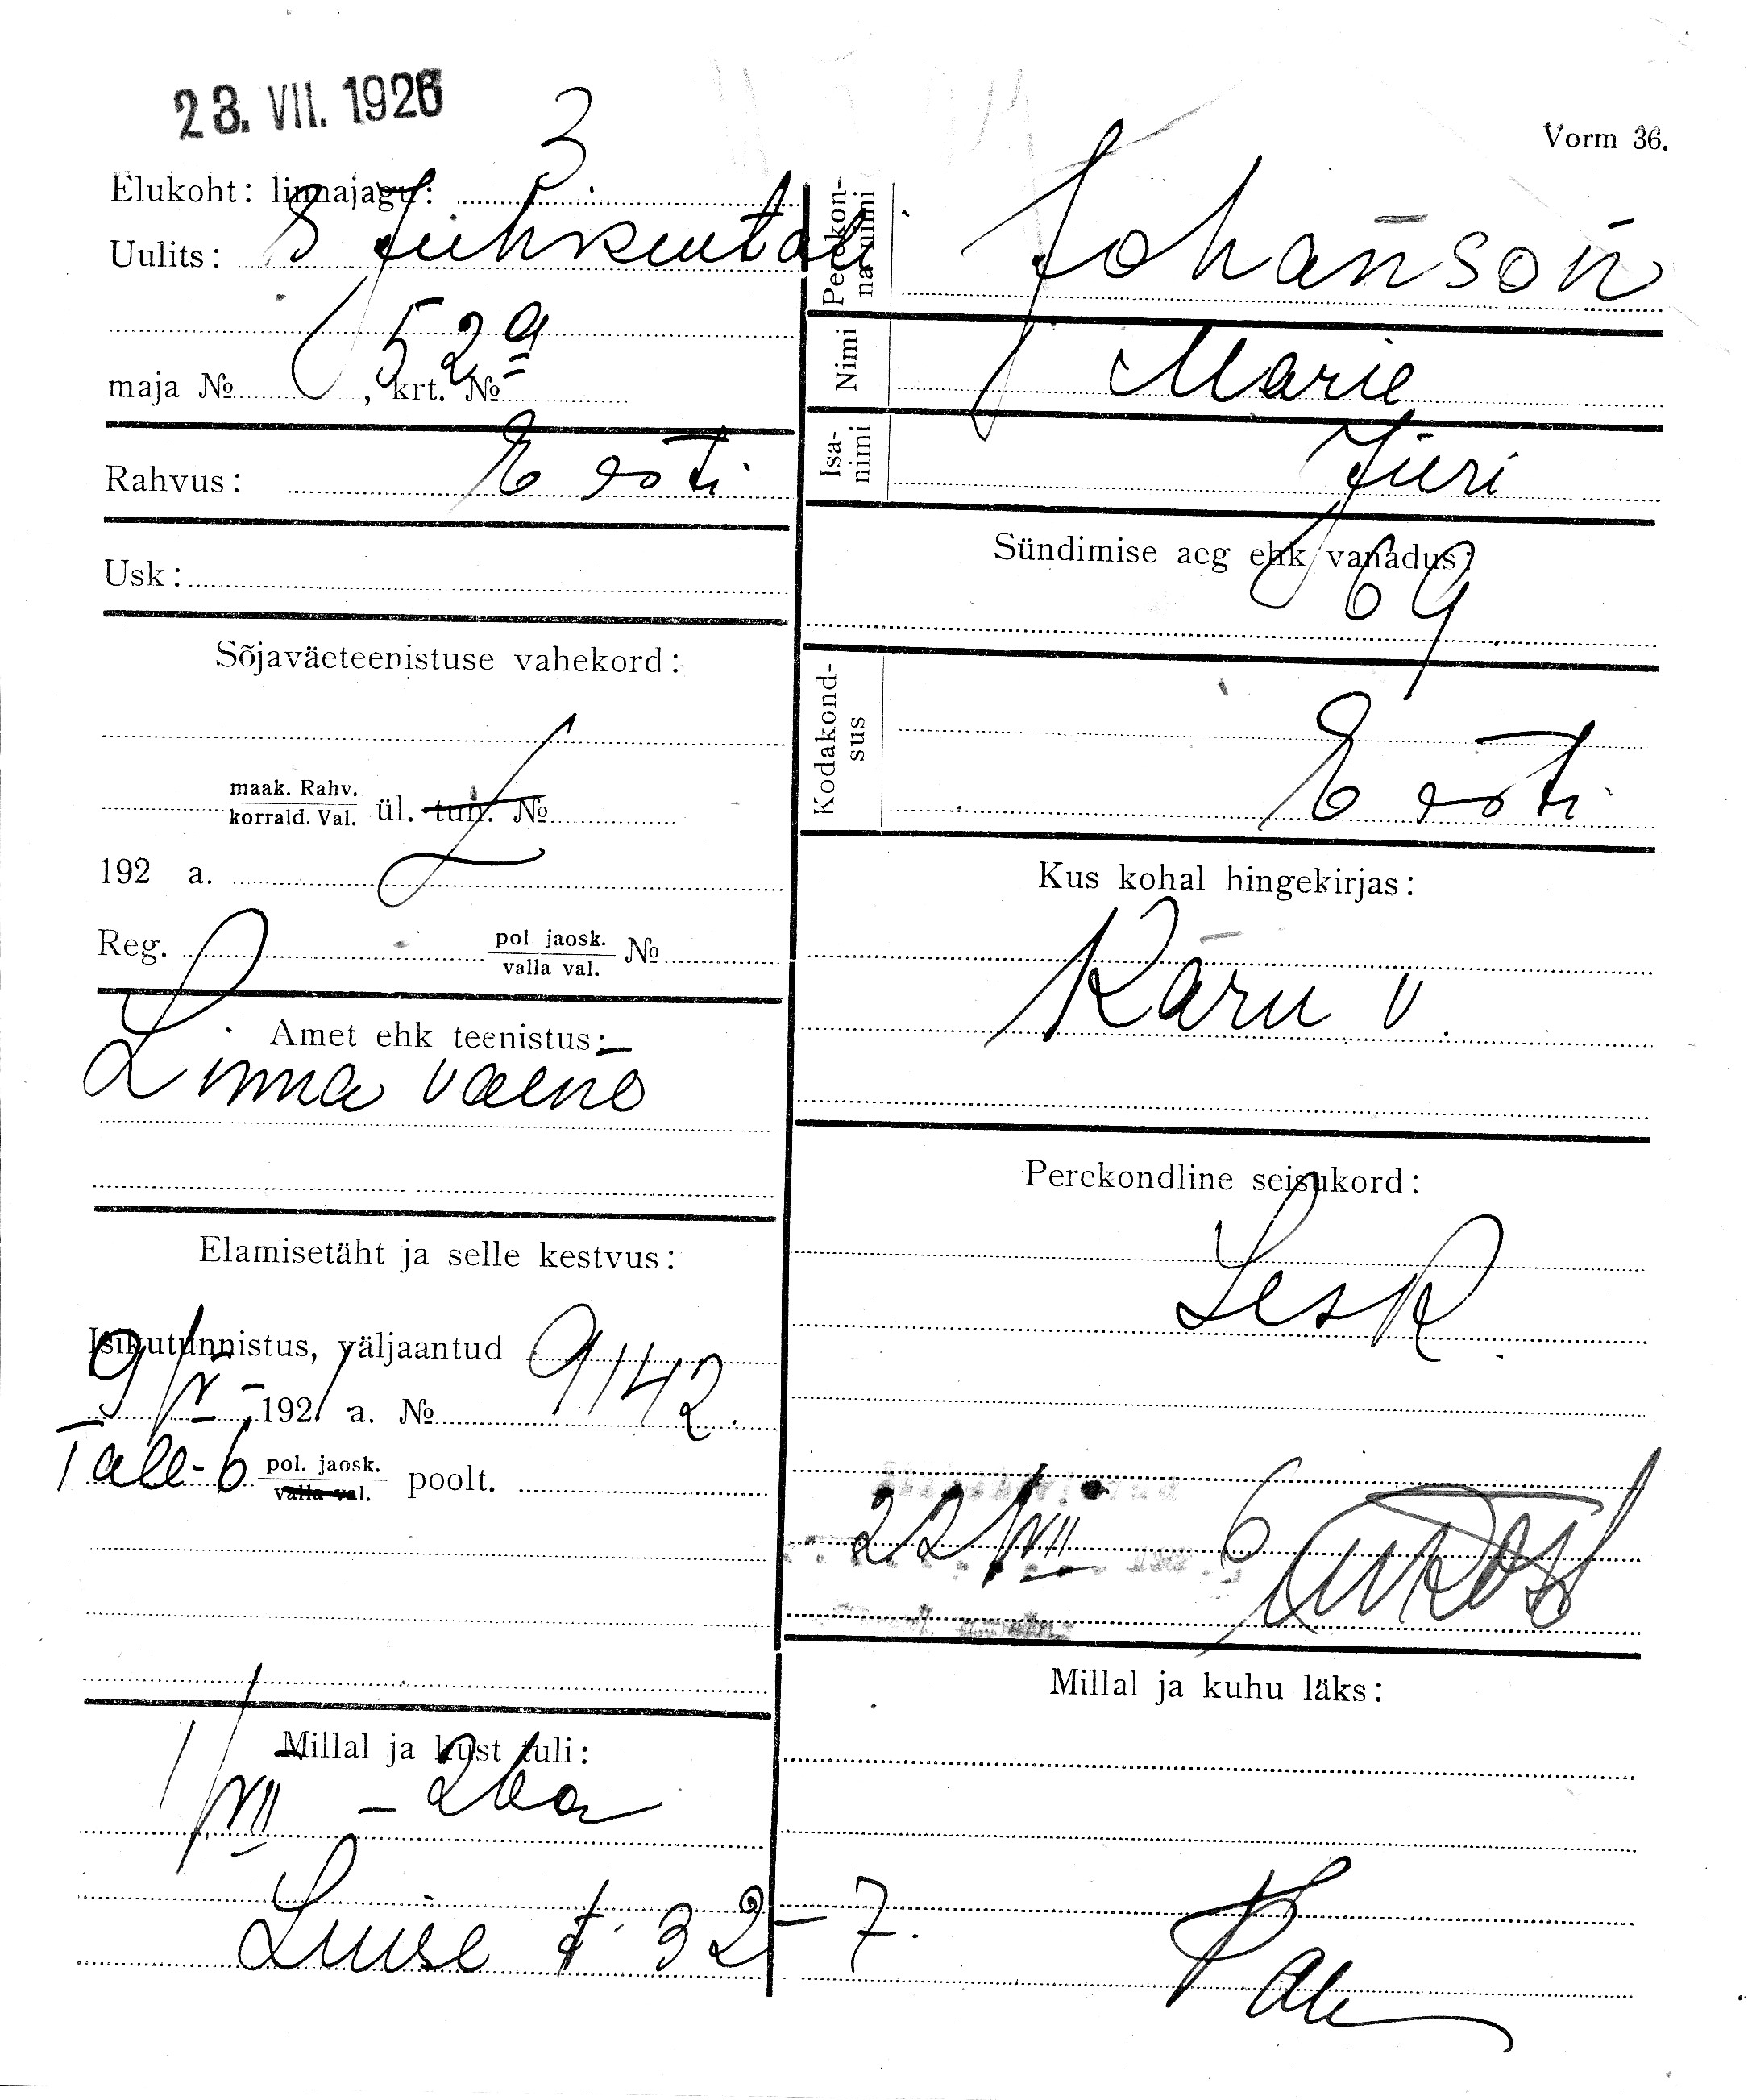 23. VII. 1926
3
Vorm 36.
Elukoht: linnajagu:
Uulits: S Juhkentali
52a
maja № , krt. №
Rahvus: Eesti
Usk:
Sõjaväeteenistuse vahekord:
maak. Rahv.
korrald. Val. ül. tun. №
192 a.
Reg. pol. jaosk.
valla val. №
Amet ehk teenistus:
Linna vaene
Elamisetäht ja selle kestvus:
Isikutunnistus, väljaantud 9142.
9/V 1921 a. №
Tall-6 pol. jaosk.
valla val. poolt.
Millal ja kust tuli:
1/VII – 26 a
Luise t 32–7.
Perekon-
na nimi Johanson
Nimi Marie
Isa-
nimi Jüri
Sündimise aeg ehk vanadus:
69
Kodakond-
sus Eesti
Kus kohal hingekirjas:
Käru v.
Perekondline seisukord:
Lesk
22/VII 6
Millal ja kuhu läks: